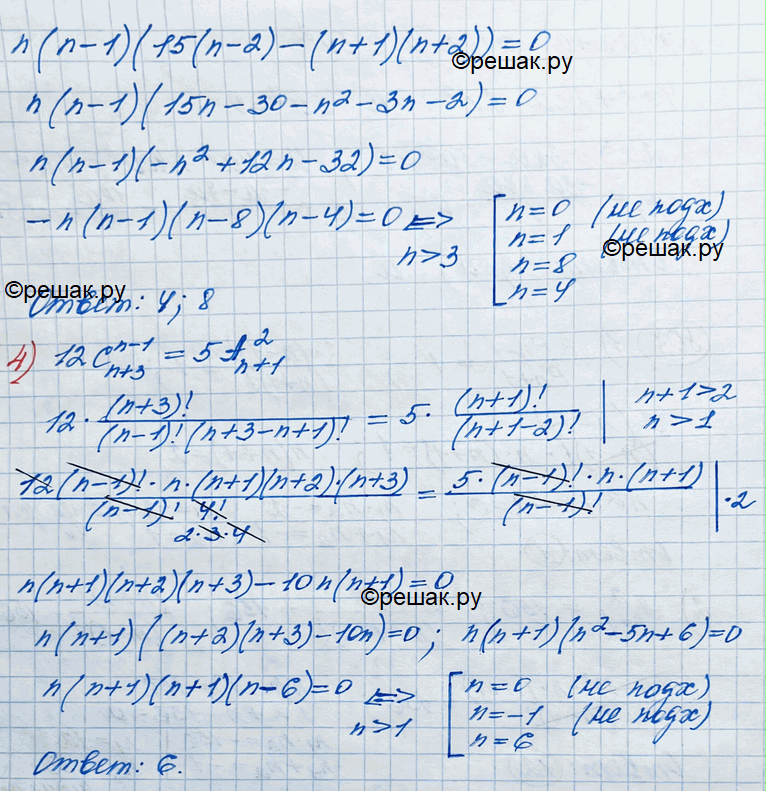 n(n-1)(15(n-2)-(n+1)(n+2))=0
©решак.ру
n(n-1)(15n-30-n²-3n-2)=0
n(n-1)(-n²+12n-32)=0
-n(n-1)(n-8)(n-4)=0 <=> n>3 [ n=0 (не подх)
n=1 (не подх)
©решак.ру
n=8
n=4
©решак.ру
Ответ: 4; 8
4) 12 C_{n+3}^{n-1} = 5 A_{n+1}^{2}
12 · (n+3)! / (n-1)!(n+3-n+1)! = 5 · (n+1)! / (n+1-2)! | n+1>2
n>1
12(n-1)! · n · (n+1)(n+2)·(n+3) / (n-1)! 4! = 5·(n-1)!·n·(n+1) / (n-1)! | ·2
2·3·4
n(n+1)(n+2)(n+3)-10n(n+1)=0
©решак.ру
n(n+1)((n+2)(n+3)-10n)=0; n(n+1)(n²-5n+6)=0
n(n+1)(n+1)(n-6)=0 <=> n>1 [ n=0 (не подх)
n=-1 (не подх)
n=6
Ответ: 6.